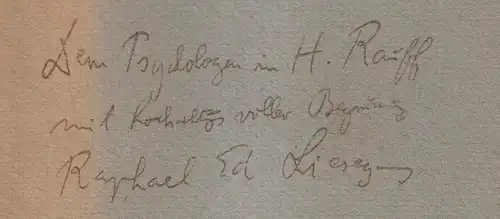 Dem Psychologen in H. Rauff
mit hochachtungsvoller Begrüßung
Raphael Ed Liesegang